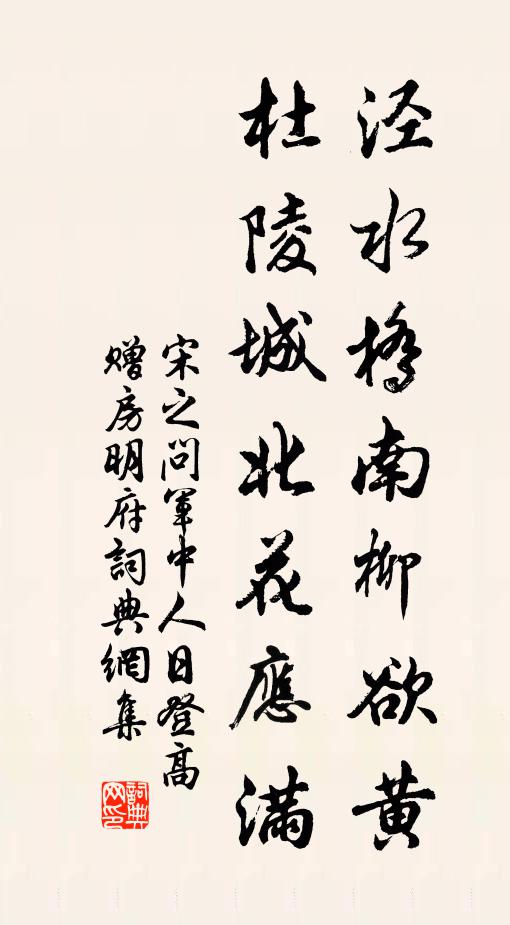 泾水橋南柳欲黄
杜陵城北花應滿
宋之問軍中人日登高
贈房明府詞典網集
詞典
网印